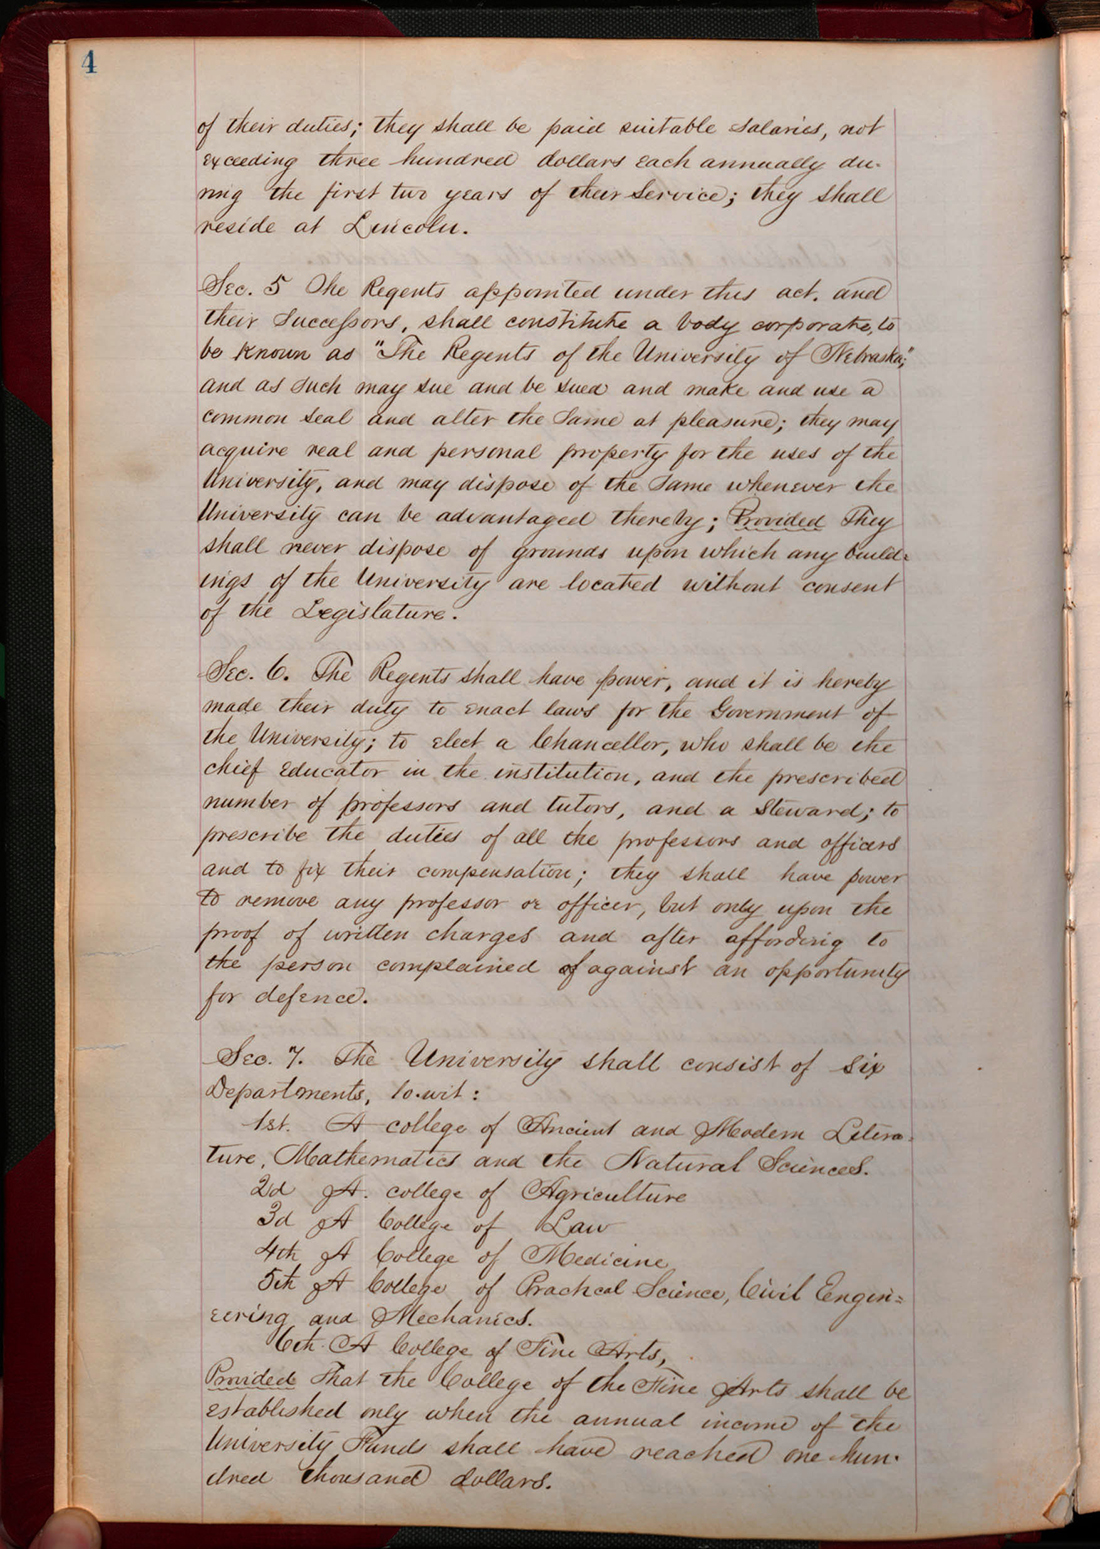 4
of their duties; they shall be paid suitable salaries, not
exceeding three hundred dollars each annually du-
ring the first two years of their Service; they shall
reside at Lincoln.
Sec. 5 The Regents appointed under this act. and
their Successors, shall constitute a body corporate, to
be known as "The Regents of the University of Nebraska;"
and as such may sue and be sued and make and use a
common seal and alter the same at pleasure; they may
acquire real and personal property for the uses of the
University, and may dispose of the same whenever the
University can be advantaged thereby; Provided They
shall never dispose of grounds upon which any build-
ings of the University are located without consent
of the Legislature.
Sec. 6. The Regents shall have power, and it is hereby
made their duty to enact laws for the Government of
the University; to elect a Chancellor, who shall be the
chief Educator in the institution, and the prescribed
number of professors and tutors, and a Steward; to
prescribe the duties of all the professors and officers
and to fix their compensation; they shall have power
to remove any professor or officer, but only upon the
proof of written charges and after affording to
the person complained of against an opportunity
for defence.
Sec. 7. The University shall consist of six
Departments, to.wit:
1st. A college of Ancient and Modern Litera-
ture, Mathematics and the Natural Sciences.
2d A. college of Agriculture
3d A College of Law
4th A College of Medicine
5th A College of Practical Science, Civil Engin=
eering and Mechanics.
6th A College of Fine Arts,
Provided That the College of the Fine Arts shall be
established only when the annual income of the
University Funds shall have reached one hun-
dred thousand dollars.